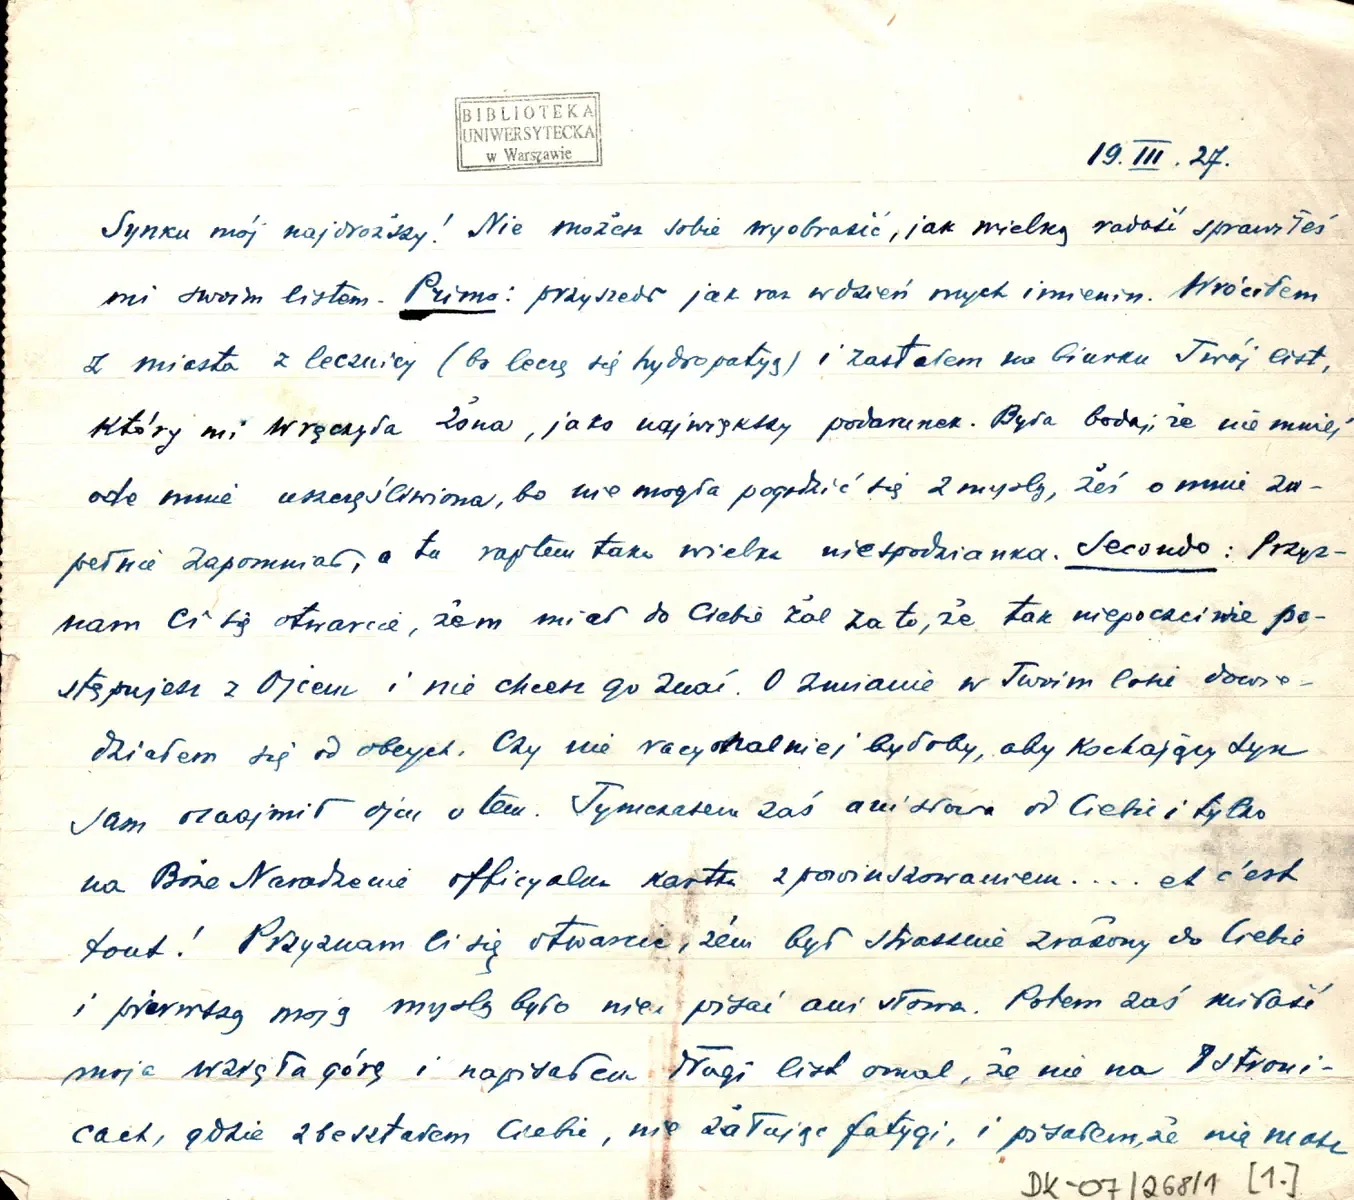 BIBLIOTEKA
UNIWERSYTECKA
w Warszawie
19.III.27.
Synku mój najdroższy! Nie możesz sobie wyobrazić, jak wielką radość sprawiłeś
mi swoim listem. Primo: przyszedł jak raz w dzień mych imienin. Wróciłem
z miasta z lecznicy (bo leczę się hydropatyą) i zastałem na biurku Twój list,
który mi wręczyła żona, jako największy podarunek. Była bodaj że nie mniej
ode mnie uszczęśliwiona, bo nie mogła pogodzić się z myślą, żeś o mnie zu-
pełnie zapomniał, a tu raptem taka wielka niespodzianka. Secondo: Przyz-
nam Ci się otwarcie, żem miał do Ciebie żal za to, że tak niepoczciwie po-
stępujesz z Ojcem i nie chcesz go znać. O zmianie w Twoim losie dowie-
działem się od obcych. Czy nie racyonalniej byłoby, aby kochający syn
sam oznajmił ojcu o tem. Tymczasem zaś ani słowa od Ciebie i tylko
na Boże Narodzenie officyalna kartka z powinszowaniem.... et c'est
tout! Przyznam Ci się otwarcie, żem był strasznie zrażony do Ciebie
i pierwszą moją myślą było nie pisać ani słowa. Potem zaś miłość
moja wzięła górę i napisałem długi list omal, że nie na stroni-
cach, gdzie zbeształem Ciebie, nie żałując fatygi, i pisałem, że nie masz
DK-07/268/1 [1.]